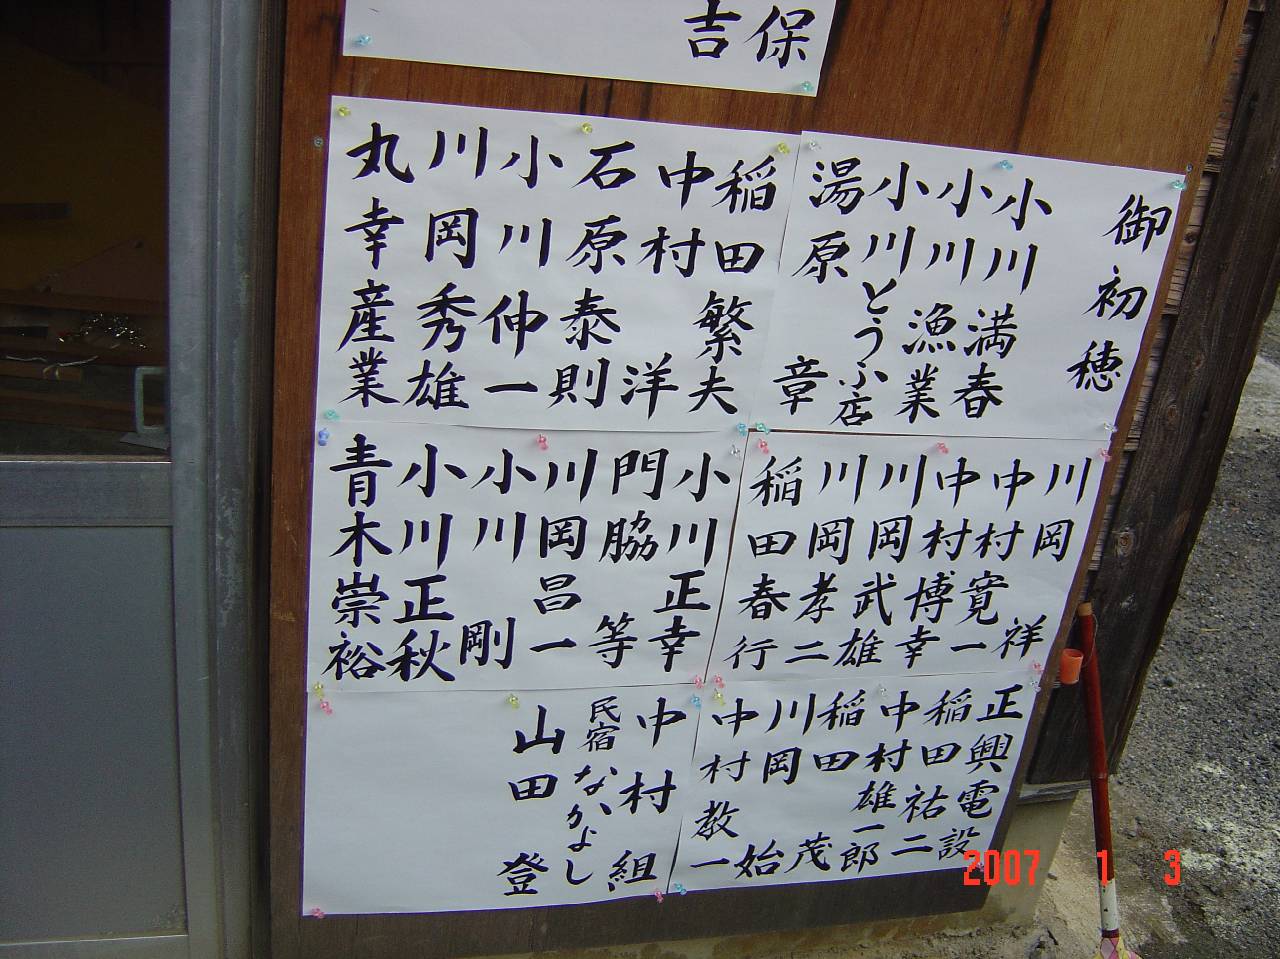 保
吉
御初穂
小川満春
小川漁業
小川とうふ店
湯原章
稲田繁夫
中村洋
石原泰則
小川伸一
川岡秀雄
丸幸産業
川岡祥
中村寛一
中村博幸
川岡武雄
川岡孝二
稲田春行
小川正幸
門脇等
川岡昌一
小川剛
小川正秋
青木崇裕
正興電設
稲田祐二
中村雄一郎
稲田茂
川岡始
中村教一
中村組
民宿なかよし
山田登
2007 1 3